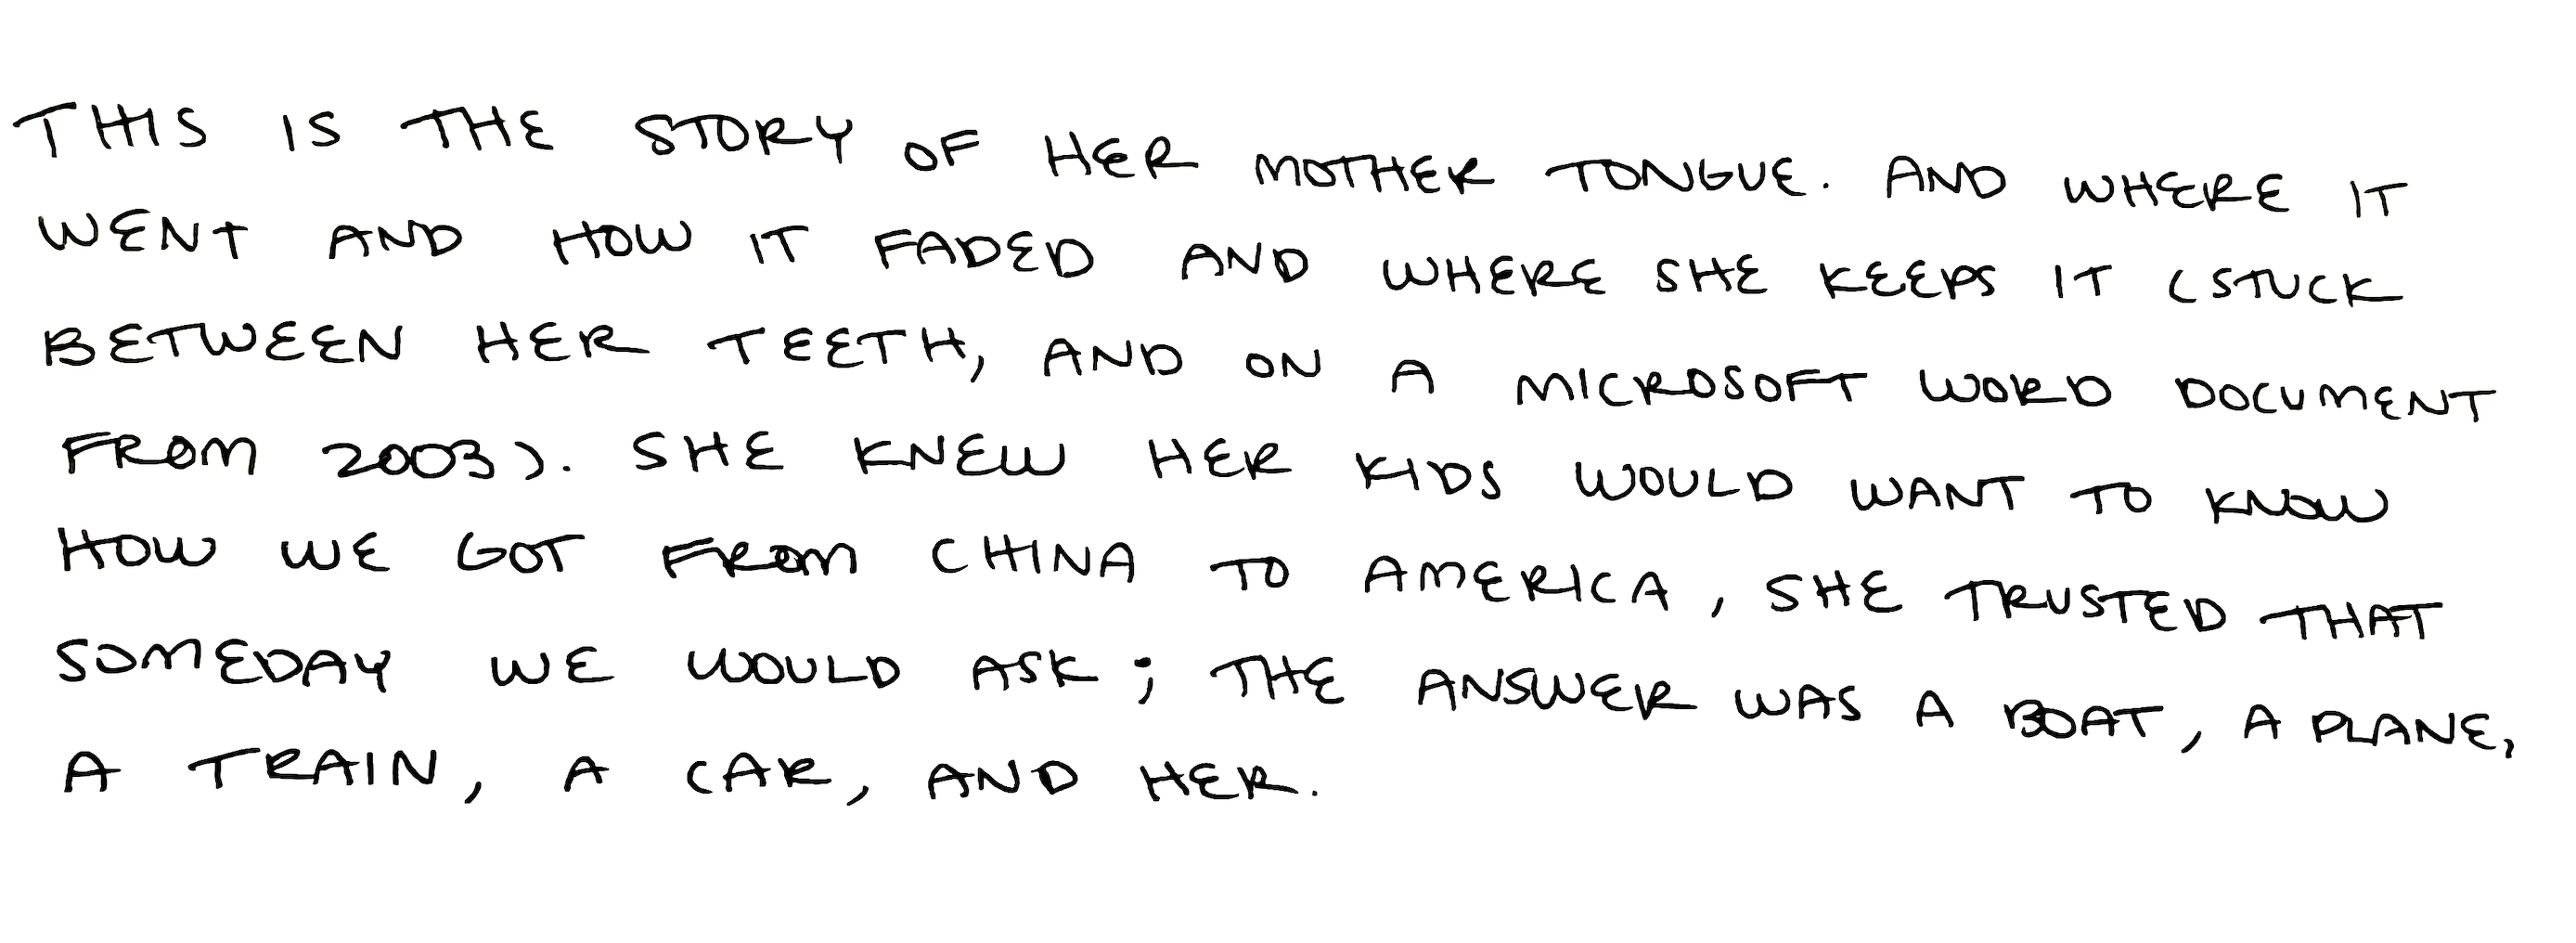 THIS IS THE STORY OF HER MOTHER TONGUE. AND WHERE IT
WENT AND HOW IT FADED AND WHERE SHE KEEPS IT (STUCK
BETWEEN HER TEETH, AND ON A MICROSOFT WORD DOCUMENT
FROM 2003). SHE KNEW HER KIDS WOULD WANT TO KNOW
HOW WE GOT FROM CHINA TO AMERICA, SHE TRUSTED THAT
SOMEDAY WE WOULD ASK; THE ANSWER WAS A BOAT, A PLANE,
A TRAIN, A CAR, AND HER.